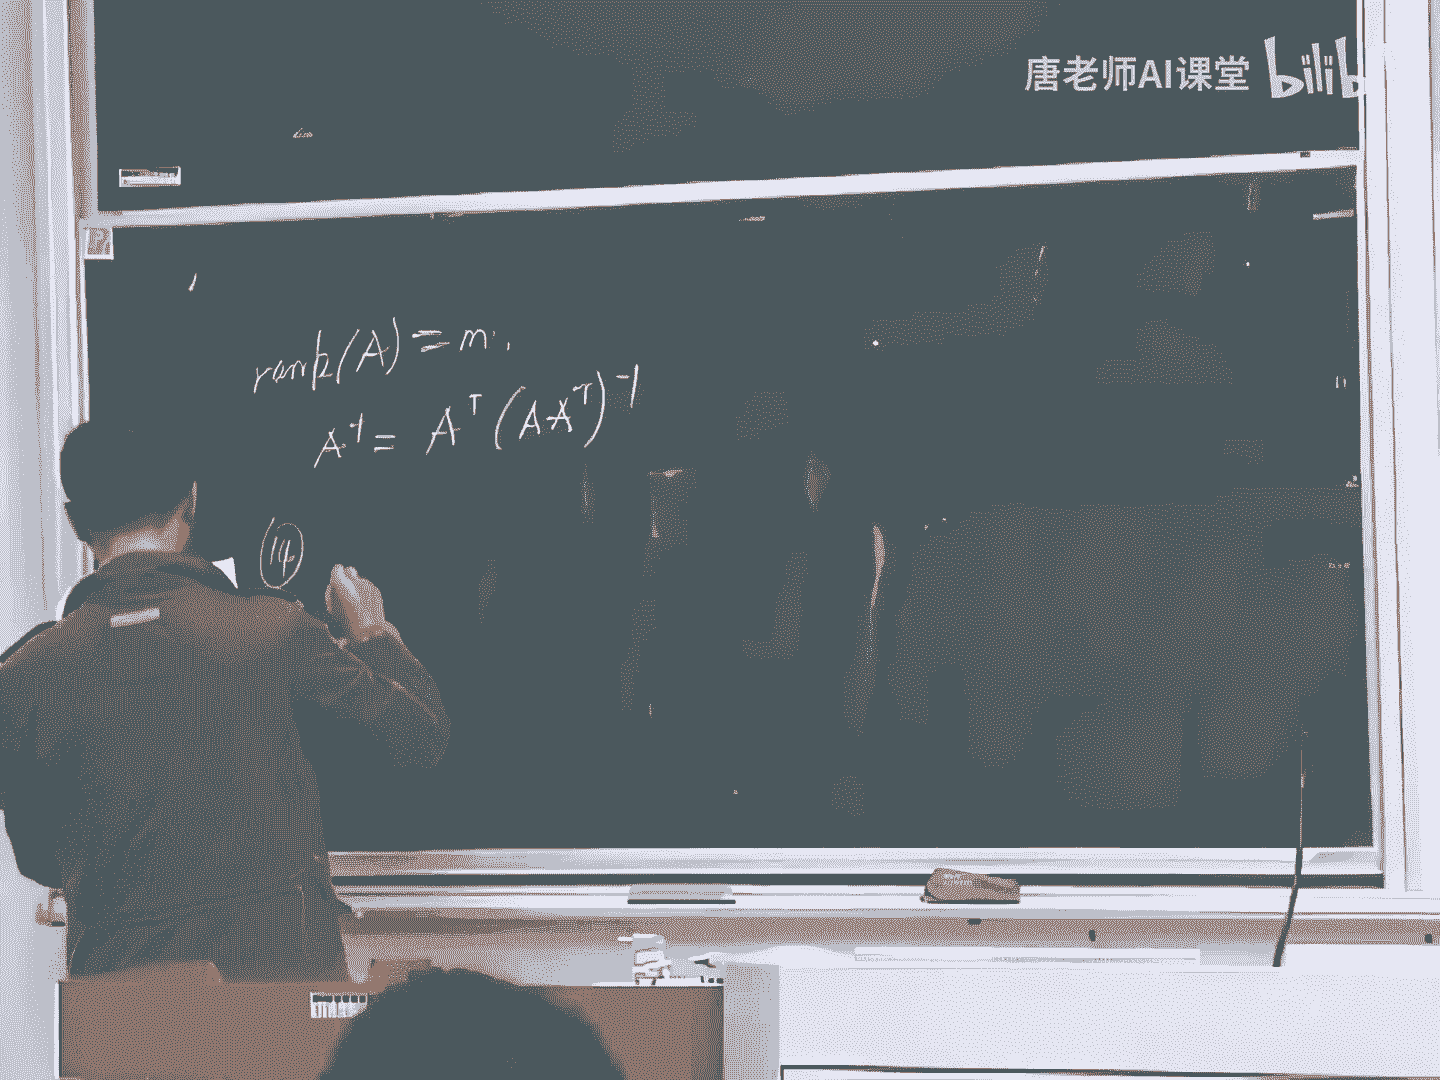 唐老师AI课堂 bilib
rank(A) = m.
A⁺ = Aᵀ(AAᵀ)⁻¹
⑭